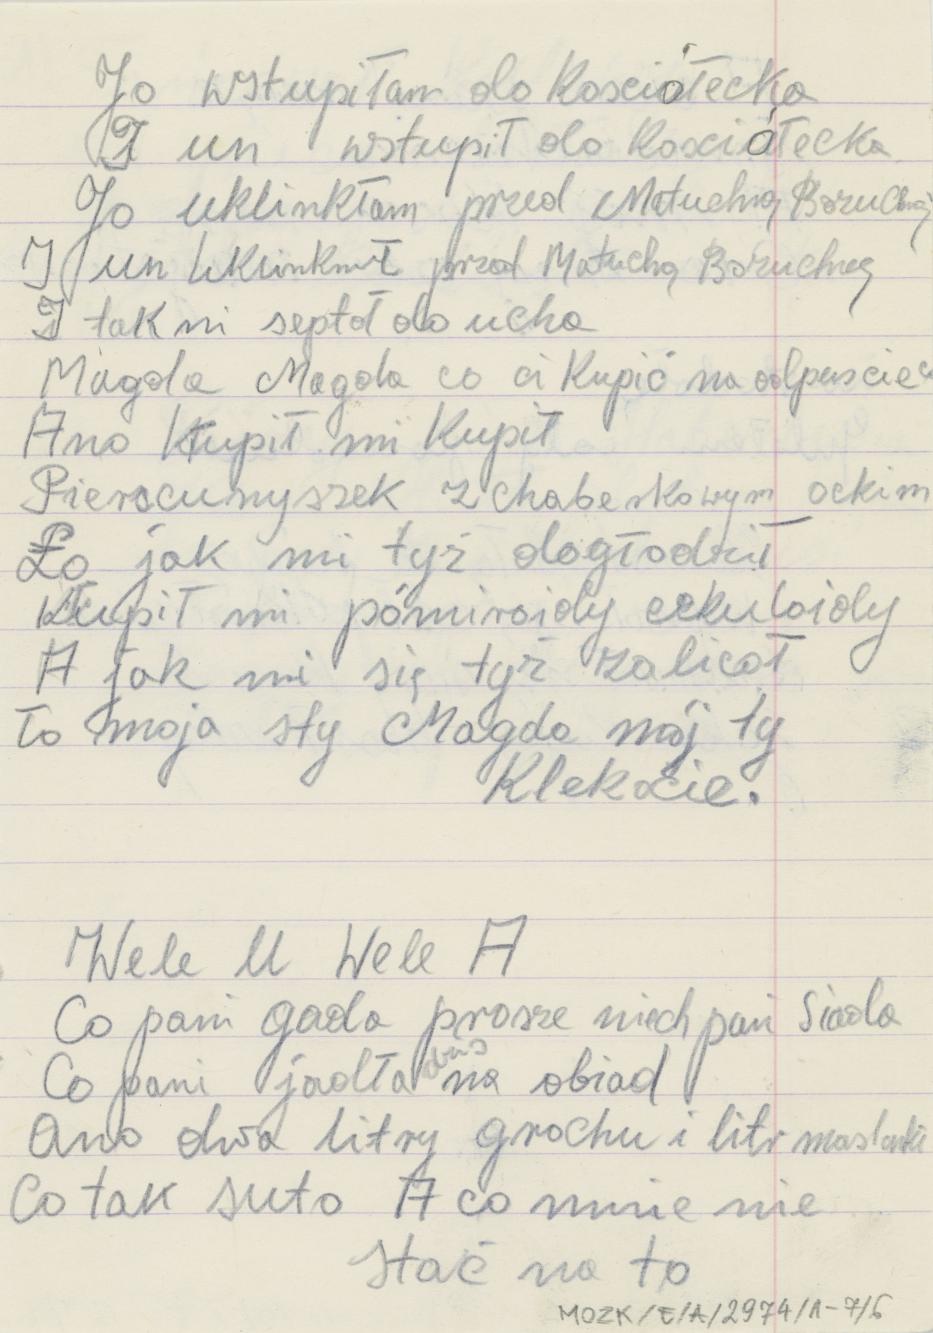 Jo wstupiłam do kosciółecka
I un wstupił do kosciółecka
Jo uklinkłam przed Matuchną Bozuchną
I un uklinknuł przed Matuchą Bozuchną
I tak mi septoł do ucha
Magda Magda co ci kupić na odpuscie
Ano kupił mi kupił
Pierscunyszek z chabenkowym ockim
Lo jak mi tyż dogłodził
kupił mi pómiroidy cekuloidy
A jak mi się tyż zalicoł
To moja sty Magdo mój ty
Klekocie.
Wele U Wele A
Co pani gada prosze niech pani siada
Co pani jadła dziś na obiad
Ano dwa litry grochu i litr maslanki
Co tak suto A co mnie nie
stać na to
MOZK/E/A/2974/1-7/6